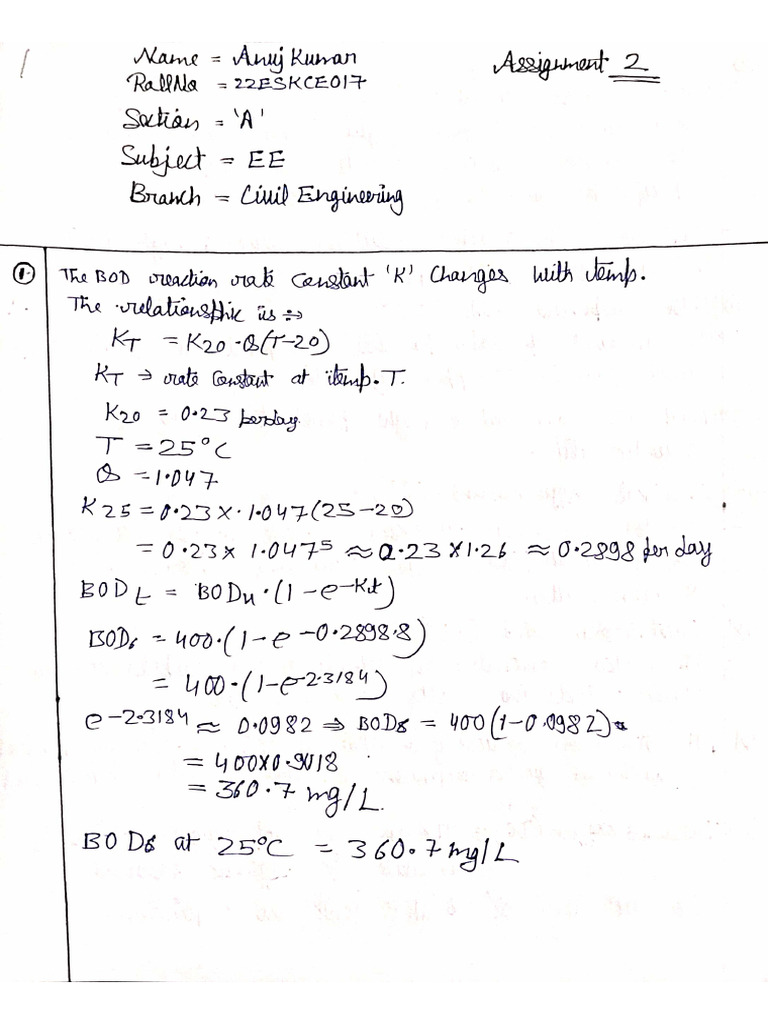 Name = Anuj Kumar
Assignment 2
RollNo = 22ESKCE017
Section = 'A'
Subject = EE
Branch = Civil Engineering
① The BOD reaction rate constant 'K' Changes with temp.
The relationship is :→
KT = K20 · θ(T-20)
KT → rate constant at temp. T.
K20 = 0.23 per day.
T = 25°C
θ = 1.047
K25 = 0.23 × 1.047(25-20)
= 0.23 × 1.047⁵ ≈ 0.23 × 1.26 ≈ 0.2898 per day
BODt = BODu · (1 - e-Kt)
BOD8 = 400 · (1 - e -0.2898.8)
= 400 · (1 - e-2.3184)
e-2.3184 ≈ 0.0982 ⇒ BOD8 = 400 (1-0.0982)
= 400×0.9018
= 360.7 mg/L.
BOD8 at 25°C = 360.7 mg/L